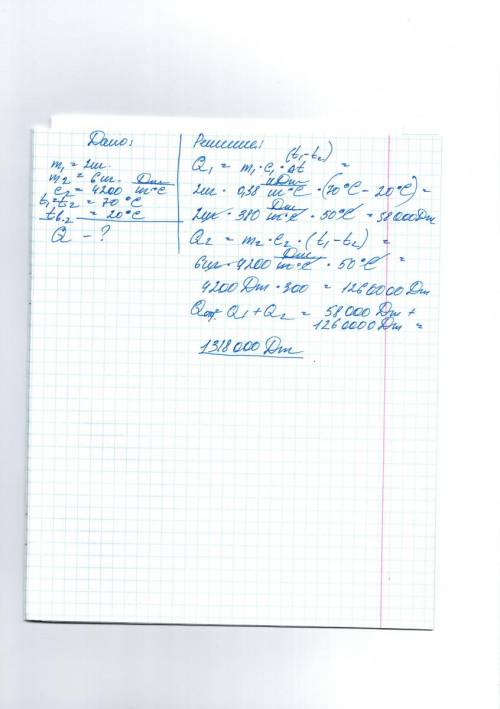 Дано:
m₁ = 2кг.
m₂ = 6кг.
c₂ = 4200 Дж/кг°C
t₁=t₂ = 70°C
t₀.₂ = 20°C
Q – ?
Решение:
(t₁-t₂)
Q₁ = m₁·c₁·Δt =
2кг · 0,38 кДж/кг°C · (70°C - 20°C) =
2кг · 380 Дж/кг°C · 50°C = 58000Дж
Q₂ = m₂·c₂·(t₁-t₂) =
6кг · 4200 Дж/кг°C · 50°C =
4200 Дж · 300 = 1260000 Дж
Q₁+Q₂ = 58000 Дж +
1260000 Дж =
1318000 Дж